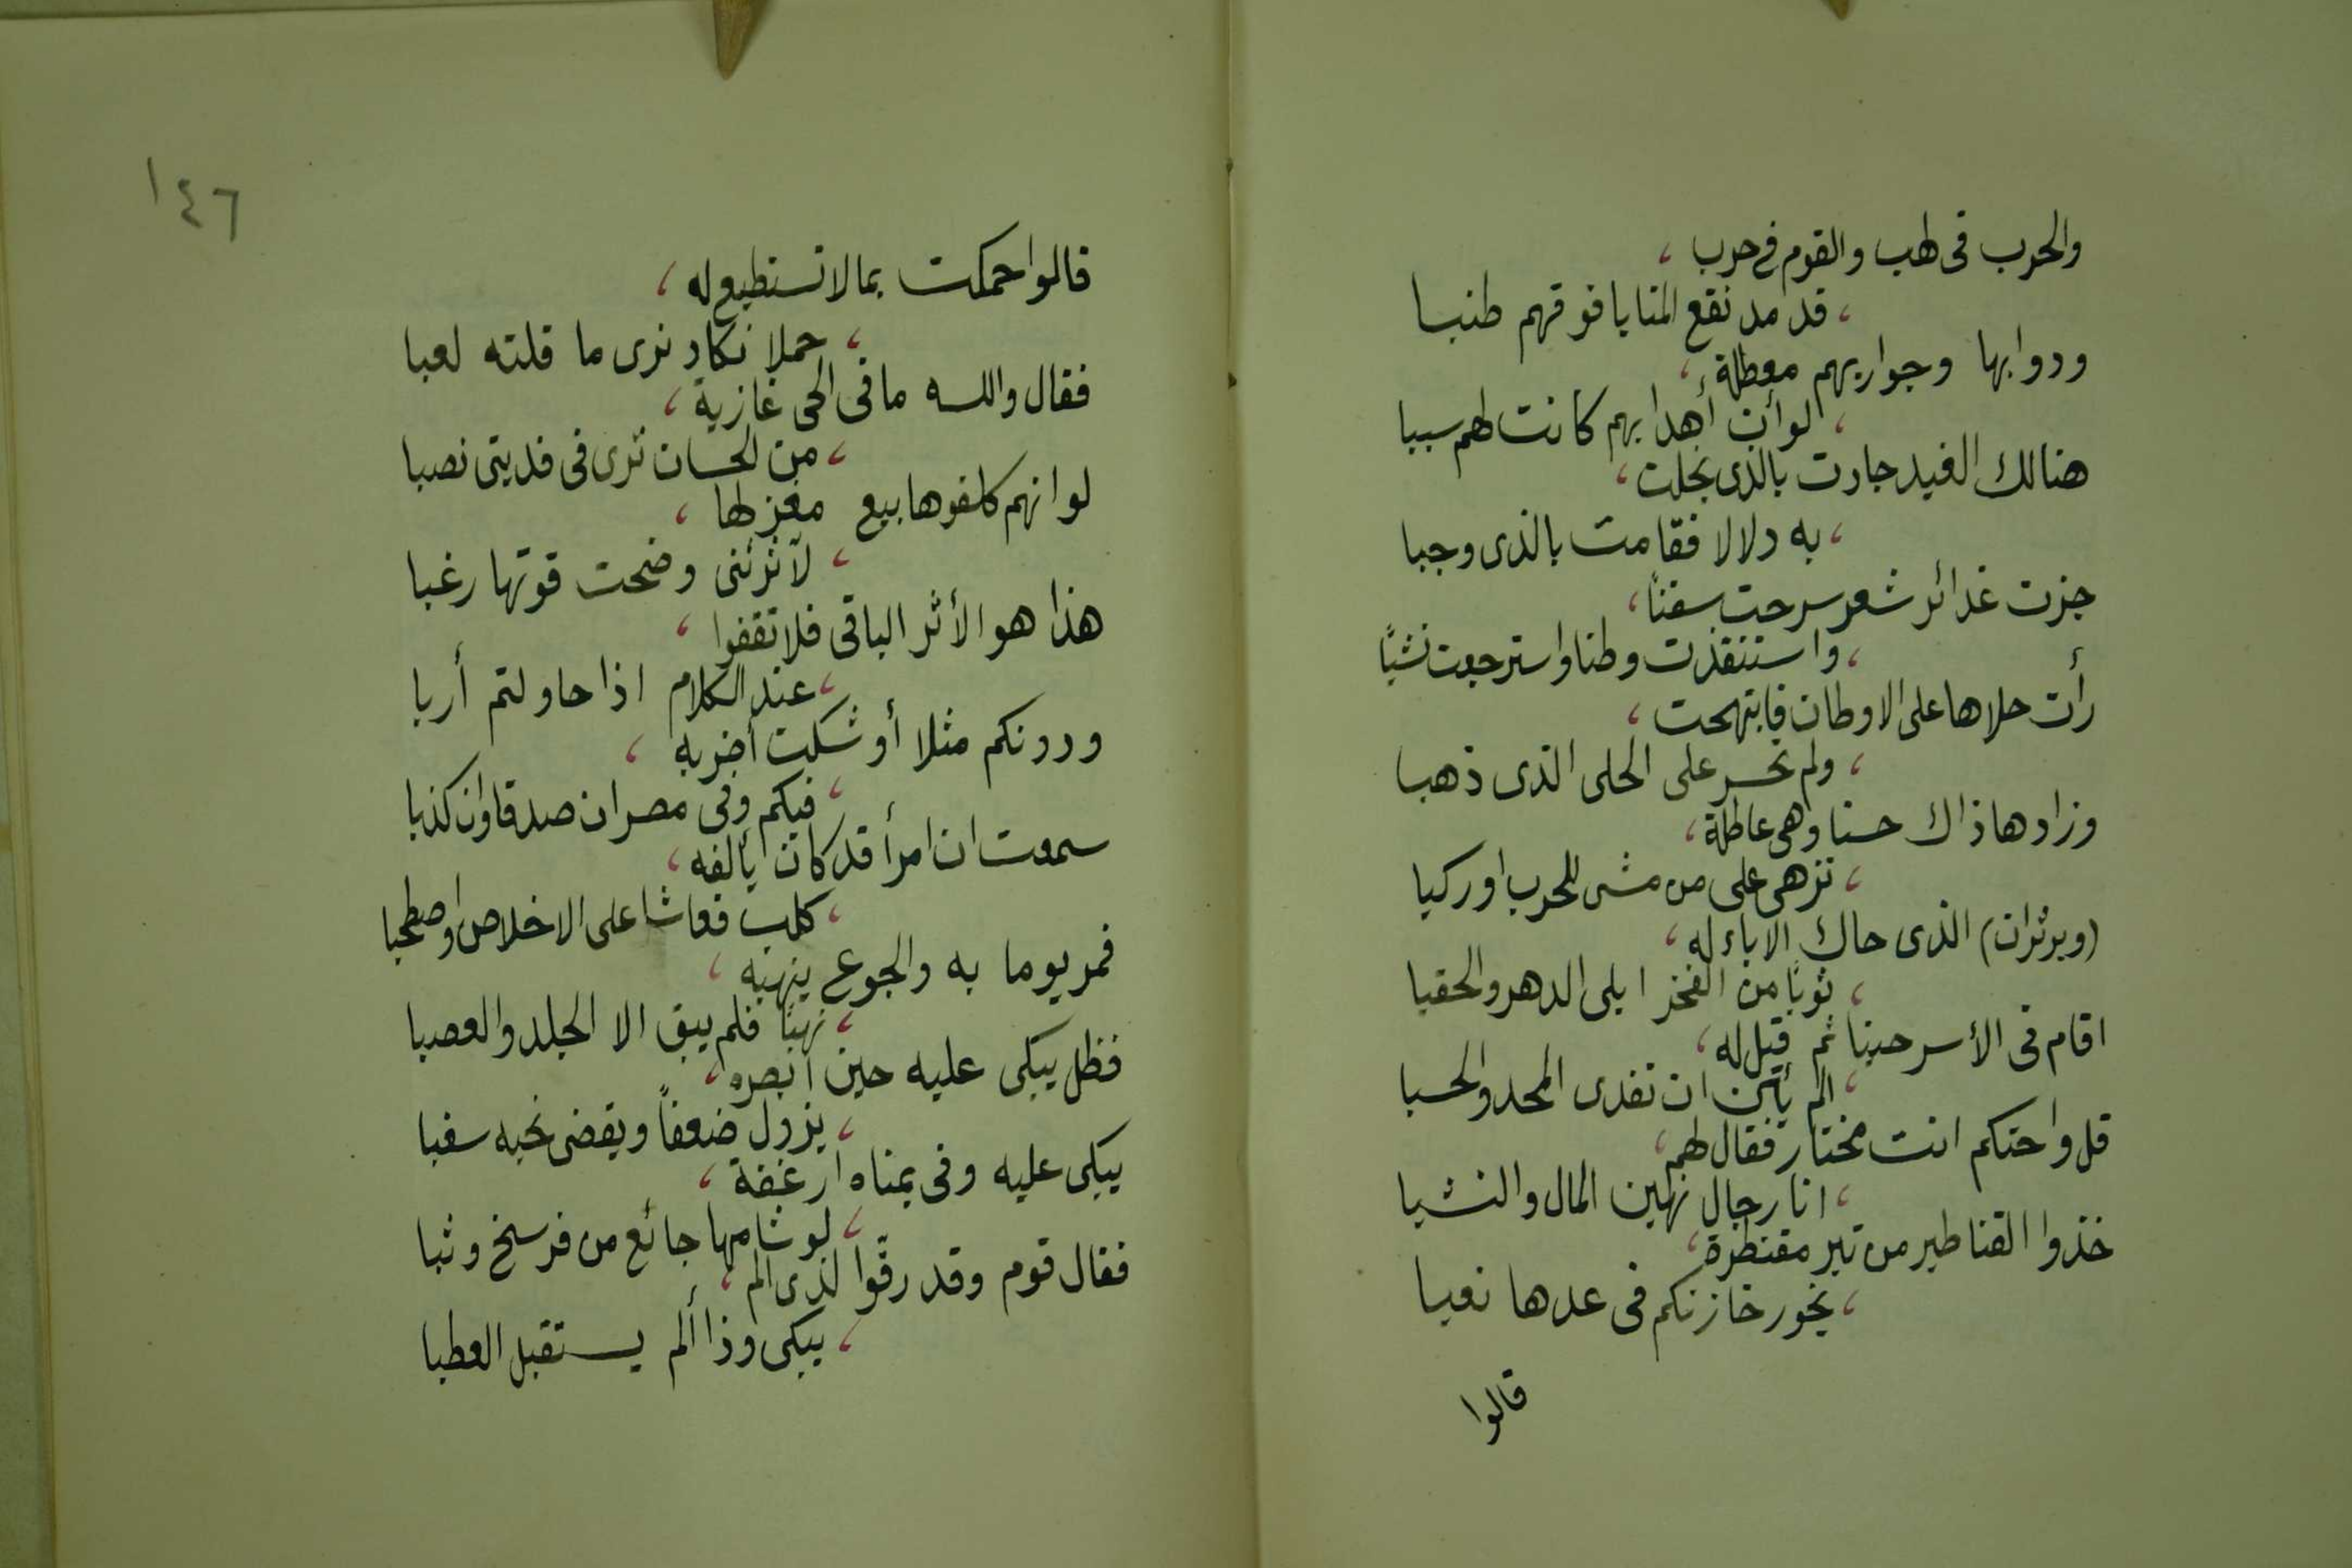 والحرب فى لهب والقوم فى حرب ،
، قد مد نقع المنايا فوقهم طنبا
ودوابها وجواريهم معطلة ،
، لو أن أهدابهم كانت لهم سببا
هنالك الغيد جادت بالذى بخلت ،
، به دلالا فقامت بالذى وجبا
جزت غدائر شعر سرحت سفنًا ،
، واستنقذت وطنا واسترجعت نشبًا
رأت حلاها على الاوطان فابتهجت ،
، ولم تحسر على الحلى الذى ذهبا
وزادها ذاك حسنا وهى عاطلة ،
، تزهى على من مشى للحرب او ركبا
(وبرثران) الذى حاك الاباء له ،
، ثوبًا من الفخر ابلى الدهر والحقبا
اقام فى الأسر حينا ثم قيل له ،
، الم يئن ان تفدى المجد والحسبا
قل واحتكم انت مختار فقال لهم ،
، انا رجال نهين المال والنشبا
خذوا القناطير من تبر مقنطرة ،
، يخور خازنكم فى عدها تعبا
قالوا
١٤٦
قالوا حمكت بما لا تستطيع له ،
، حملا نكاد نرى ما قلته لعبا
فقال والله ما فى الحى غازية ،
، من الحسان ترى فى فديتى نصبا
لو انهم كلفوها بيع مغزلها ،
، لآثرتنى وضحت قوتها رغبا
هذا هو الأثر الباقى فلا تقفوا ،
، عند الكلام اذا حاولتم أربا
ودونكم مثلا أوشكت أضربه ،
، فيكم وفى مصر ان صدقا وان كذبا
سمعت ان امرأ قد كان يألفه ،
، كلب فعاشا على الاخلاص واصطحبا
فمر يوما به والجوع ينهبه ،
، نهبًا فلم يبق الا الجلد والعصبا
فظل يبكى عليه حين ابصره ،
، يزول ضعفًا ويقضى نحبه سغبا
يبكى عليه وفى يمناه ارغفة ،
، لو شامها جائع من فرسخ وثبا
فقال قوم وقد رقوا لذى الم ،
، يبكى وذا ألم يستقبل العطبا